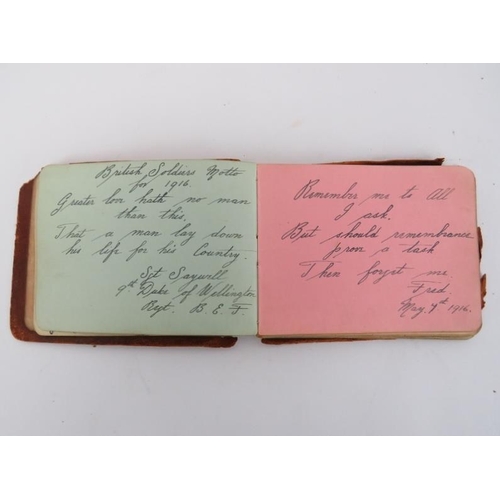 British Soldiers Motto
for 1916.
Greater love hath no man
than this.
That a man lay down
his life for his Country.
Sgt Saywell
9th Duke of Wellington
Regt. B. E. F
Remember me to All
I ask!
But should remembrance
prove a task
Then forget me.
Fred.
May. 9th 1916.